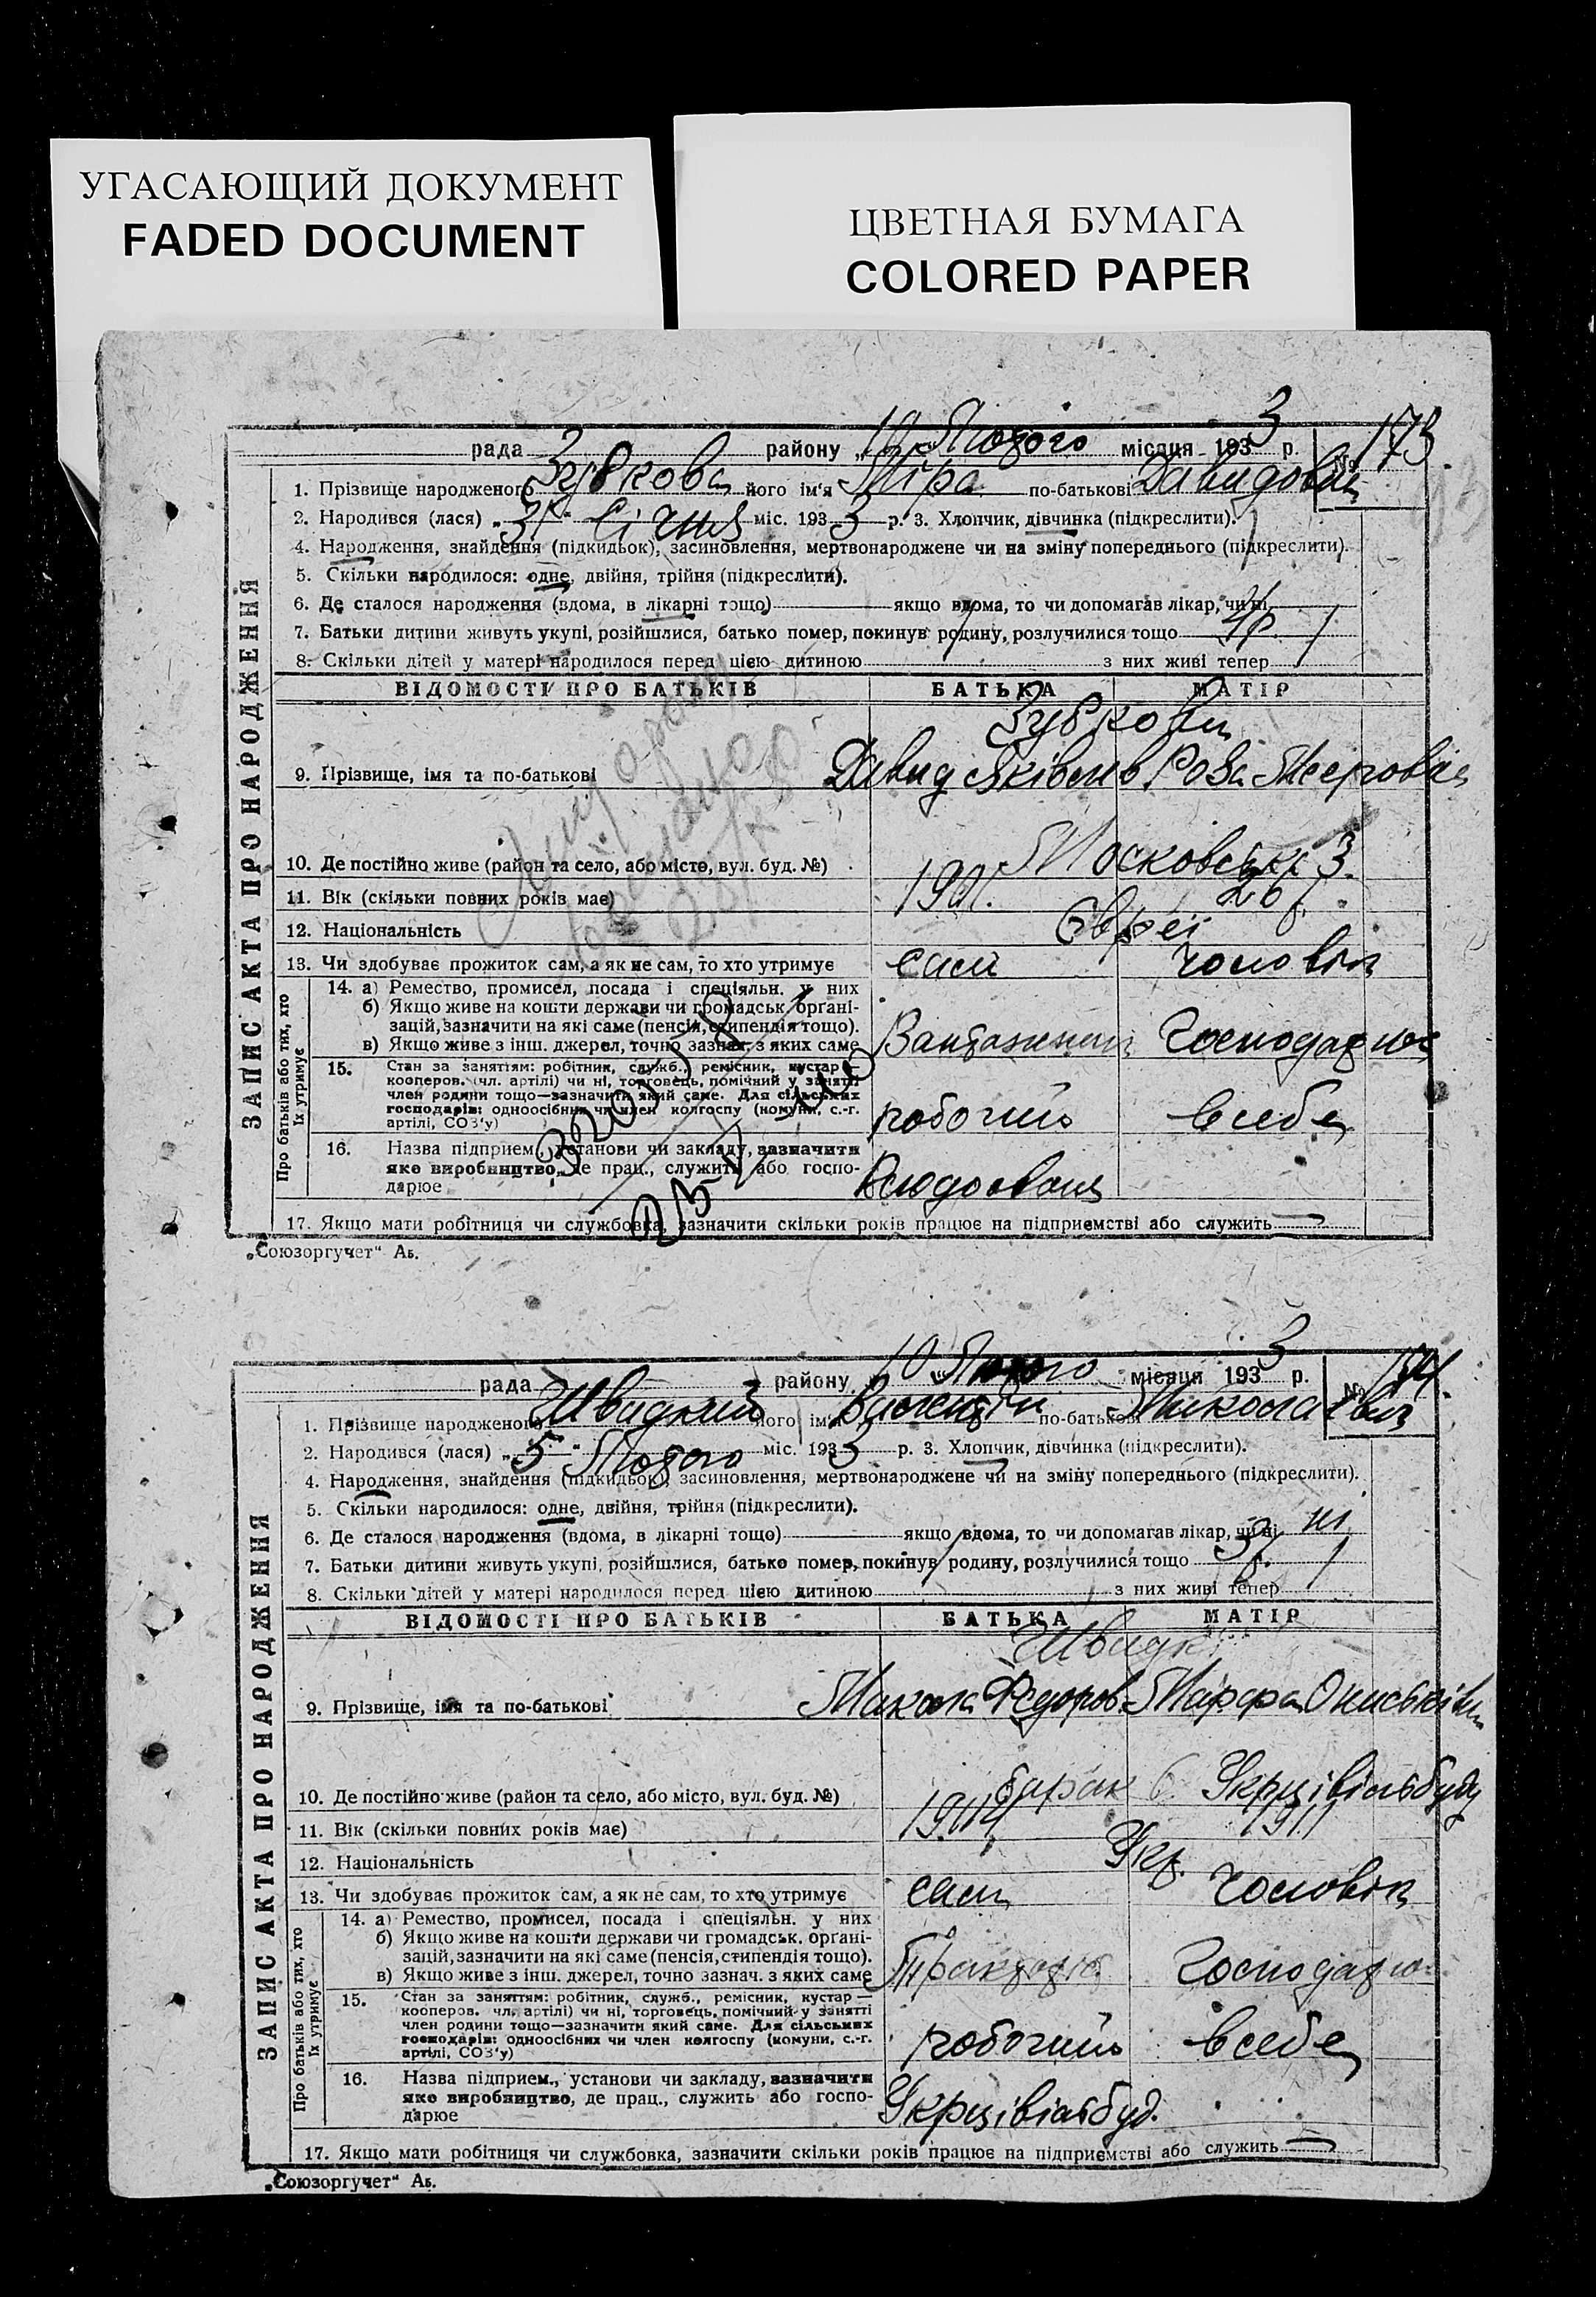 УГАСАЮЩИЙ ДОКУМЕНТ
FADED DOCUMENT
ЦВЕТНАЯ БУМАГА
COLORED PAPER
рада району „10 Лютого місяця 1933 р. № 173
ЗАПИС АКТА ПРО НАРОДЖЕННЯ
1. Прізвище народженого Зубкова його ім'я Міра по-батькові Давидовна
2. Народився (лася) „31“ Січня міс. 1933 р. 3. Хлопчик, дівчинка (підкреслити).
4. Народження, знайдення (підкидьок), засиновлення, мертвонароджене чи на зміну попереднього (підкреслити).
5. Скільки народилося: одне, двійня, трійня (підкреслити).
6. Де сталося народження (вдома, в лікарні тощо) якщо вдома, то чи допомагав лікар, чи ні
7. Батьки дитини живуть укупі, розійшлися, батько помер, покинув родину, розлучилися тощо 4р.
8. Скільки дітей у матері народилося перед цією дитиною 1 з них живі тепер 1
ВІДОМОСТІ ПРО БАТЬКІВ БАТЬКА МАТІР
Зубкови
9. Прізвище, імя та по-батькові Давид Яківлів Роза Меєровна
10. Де постійно живе (район та село, або місто, вул. буд. №) Московська 3.
11. Вік (скільки повних років має) 1901. 26
12. Національність Євреї
13. Чи здобуває прожиток сам, а як не сам, то хто утримує сам чоловік
Про батьків або тих, хто їх утримує
14. а) Ремество, промисел, посада і спеціяльн. у них
б) Якщо живе на кошти держави чи громадськ. органі-
зацій, зазначити на які саме (пенсія, стипендія тощо).
в) Якщо живе з інш. джерел, точно зазнач. з яких саме Вантажник Господарює
15. Стан за заняттям: робітник, служб., ремісник, кустар —
кооперов. (чл. артілі) чи ні, торговець, помічний у занятті
член родини тощо—зазначити який саме. Для сільських
господарів: одноосібник чи член колгоспу (комуни, с.-г.
артілі, СОЗ'у) робочий в себе
16. Назва підприєм., установи чи закладу, зазначити
яке виробництво, де прац., служить або госпо-
дарює
17. Якщо мати робітниця чи службовка, зазначити скільки років працює на підприємстві або служить —
„Союзоргучет“ Аб.
рада району „10 Лютого місяця 1933 р. № 174.
ЗАПИС АКТА ПРО НАРОДЖЕННЯ
1. Прізвище народженого Швидкий його ім'я по-батькові Миколаєвич
2. Народився (лася) „5“ Лютого міс. 1933 р. 3. Хлопчик, дівчинка (підкреслити).
4. Народження, знайдення (підкидьок), засиновлення, мертвонароджене чи на зміну попереднього (підкреслити).
5. Скільки народилося: одне, двійня, трійня (підкреслити).
6. Де сталося народження (вдома, в лікарні тощо) якщо вдома, то чи допомагав лікар, чи ні ні
7. Батьки дитини живуть укупі, розійшлися, батько помер, покинув родину, розлучилися тощо 3р.
8. Скільки дітей у матері народилося перед цією дитиною 1 з них живі тепер 1
ВІДОМОСТІ ПРО БАТЬКІВ БАТЬКА МАТІР
Швидкі
9. Прізвище, імя та по-батькові Микола Федоров. Марфа Ониськівна
10. Де постійно живе (район та село, або місто, вул. буд. №) барак 6 Укрцівільбуду
11. Вік (скільки повних років має) 1911
12. Національність Укр.
13. Чи здобуває прожиток сам, а як не сам, то хто утримує сам чоловік
Про батьків або тих, хто їх утримує
14. а) Ремество, промисел, посада і спеціяльн. у них
б) Якщо живе на кошти держави чи громадськ. органі-
зацій, зазначити на які саме (пенсія, стипендія тощо).
в) Якщо живе з інш. джерел, точно зазнач. з яких саме Господарює
15. Стан за заняттям: робітник, служб., ремісник, кустар —
кооперов. чл. артілі) чи ні, торговець, помічний у занятті
член родини тощо—зазначити який саме. Для сільських
господарів: одноосібних чи член колгоспу (комуни, с.-г.
артілі, СОЗ'у) робочий в себе
16. Назва підприєм., установи чи закладу, зазначити
яке виробництво, де прац., служить або госпо-
дарює Укрцівільбуд.
17. Якщо мати робітниця чи службовка, зазначити скільки років працює на підприємстві або служить —
„Союзоргучет“ Аб.